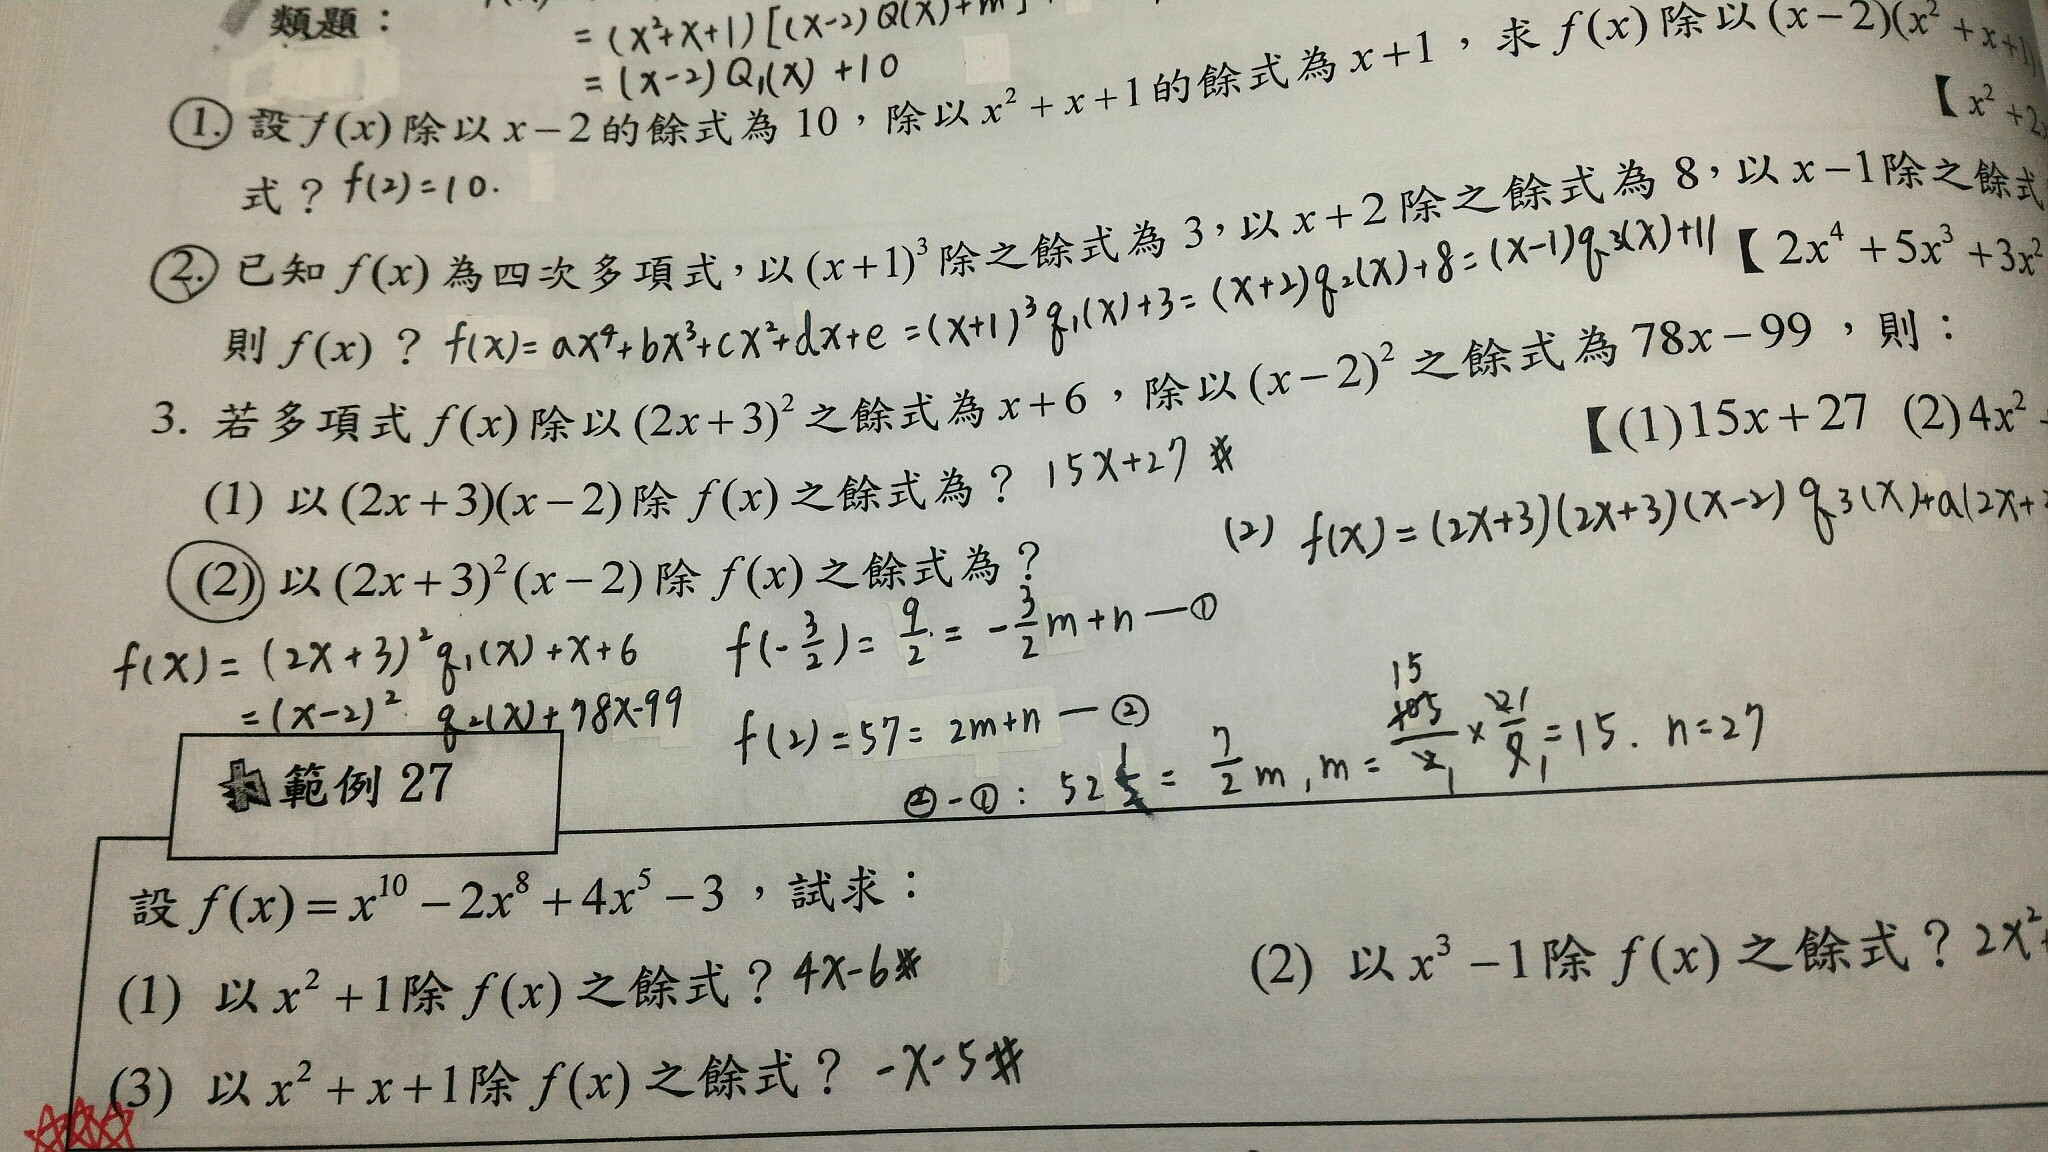 類題：
= (x²+x+1) [(x-2) Q(x)+m]
= (x-2) Q₁(x) +10
1. 設 f(x) 除以 x-2 的餘式為 10，除以 x²+x+1 的餘式為 x+1，求 f(x) 除以 (x-2)(x²+x+1)
【x²+2x
式？ f(2)=10.
2. 已知 f(x) 為四次多項式，以 (x+1)³ 除之餘式為 3，以 x+2 除之餘式為 8，以 x-1 除之餘式
則 f(x)？ f(x)= ax⁴+bx³+cx²+dx+e =(x+1)³q₁(x)+3= (x+2)q₂(x)+8= (x-1)q₃(x)+11 【2x⁴+5x³+3x²
3. 若多項式 f(x) 除以 (2x+3)² 之餘式為 x+6，除以 (x-2)² 之餘式為 78x-99，則：
【(1)15x+27 (2)4x²
(1) 以 (2x+3)(x-2) 除 f(x) 之餘式為？ 15x+27 #
(2) 以 (2x+3)²(x-2) 除 f(x) 之餘式為？
(2) f(x)= (2x+3)(2x+3)(x-2) q₃(x)+a(2x+3
f(x)= (2x+3)²q₁(x)+x+6
= (x-2)² q₂(x)+78x-99
f(-3/2)= 9/2 = -3/2 m+n —①
f(2)=57= 2m+n —②
②-①: 52 1/2 = 7/2 m, m= 15 105/2 × 2/7 =15. n=27
範例 27
設 f(x)=x¹⁰-2x⁸+4x⁵-3，試求：
(1) 以 x²+1 除 f(x) 之餘式？ 4x-6#
(2) 以 x³-1 除 f(x) 之餘式？ 2x²+
(3) 以 x²+x+1 除 f(x) 之餘式？ -x-5#